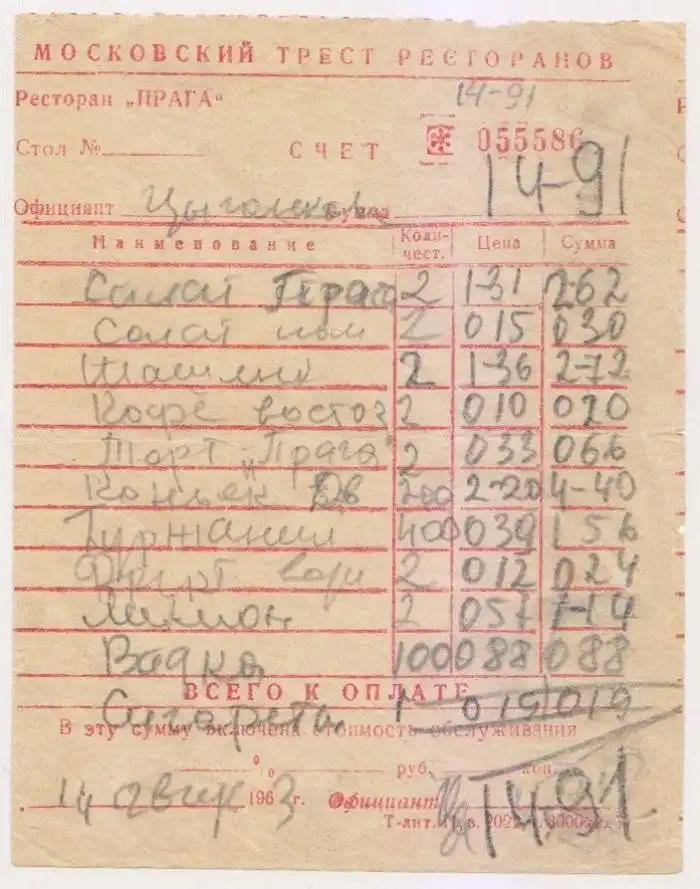 МОСКОВСКИЙ ТРЕСТ РЕСТОРАНОВ
Ресторан „ПРАГА“ 14-91
Стол № СЧЕТ 055586
14-91
Официант Цыганков Сумма
Наименование Коли-чест. Цена Сумма
Салат Прага 2 1-31 2-62
Салат пом 2 015 030
Шашлык 2 1-36 2-72
Кофе восточ 2 010 020
Торт „Прага“ 2 033 066
Коньяк 200 2-20 4-40
Гурджаани 400 039 1 56
Фрукт воды 2 012 024
Лимон 2 057 1-14
Водка 100 088 088
ВСЕГО К ОПЛАТЕ
Сигареты 1 019 019
В эту сумму включена стоимость обслуживания
% руб. коп.
14-91
14 авгус 1963 г. Официант
Т-лит.